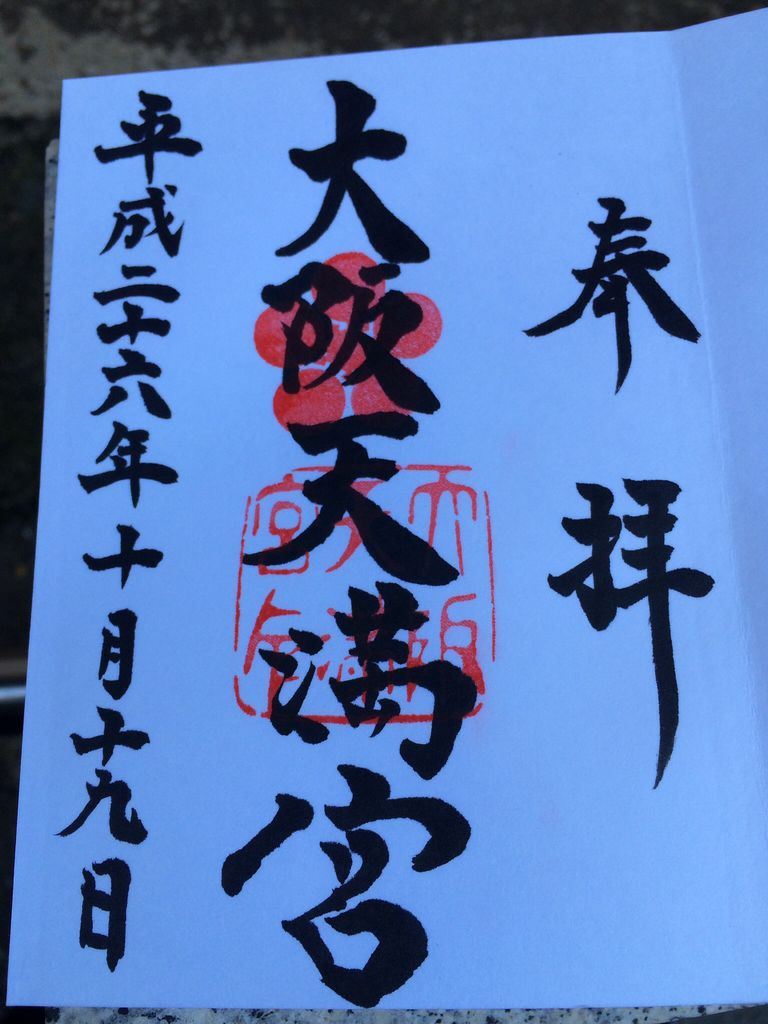 奉拝
大阪天満宮
平成二十六年十月十九日